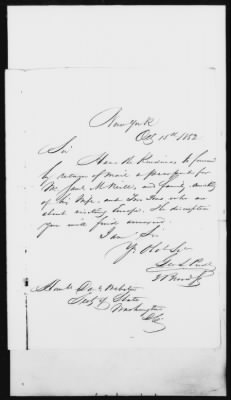 New York
Oct 15th 1852
Sir
Have the kindness to forward
by return of mail a passport for
Mr and family, consisting
of his Wife, and two who are
about visiting Europe. His description
you will find annexed
I am Sir
Yr Obt St
Geo. S.
Honble Danl Webster
Secy of State
Washington
D.C.